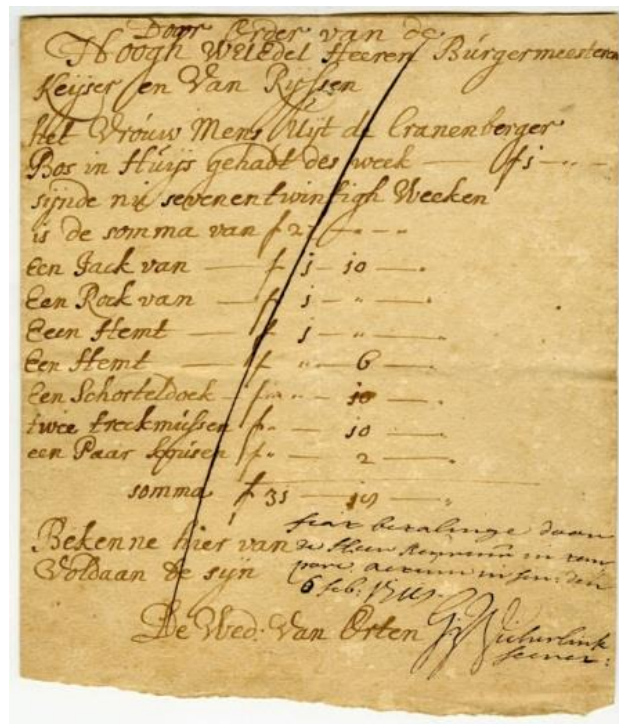 Door Order van de
Hoogh WelEdel Heeren Burgermeesteren
Keijser en Van Ryssen
Het Vrouw Mens Uijt de Cranenberger
Bos in Huijs gehadt des week — f 1 - " -
sijnde nu sevenentwintigh Weeken
is de somma van f 27 - " -
Een Jack van — f 1 - 10 —
Een Rock van — f 1 - " —
Eeen Hemt — f 1 - " —
Een Hemt — f " - 6 —
Een Schorteldoek — f " - 10 —
twee treckmussen f " - 10 —
een Paar kousen f " - 2 —
somma f 31 — 18 —
Bekenne hier van
Voldaan te syn
fiat betalinge door
de Heer in
6 feb:
De Wed: Van Orten